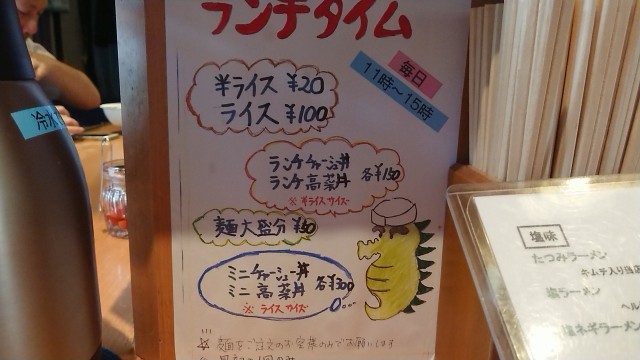 ランチタイム
毎日
11時～15時
半ライス ¥20
ライス ¥100
ランチチャーシュー丼
ランチ高菜丼 各¥150
※半ライスサイズ
麺大盛分 ¥50
ミニチャーシュー丼
ミニ高菜丼 各¥300
※ライスサイズ
☆ 麺をご注文のお客様のみでお願いします
冷水
塩味
たつみラーメン
キムチ入り
塩ラーメン
ヘル
塩ネギラーメン